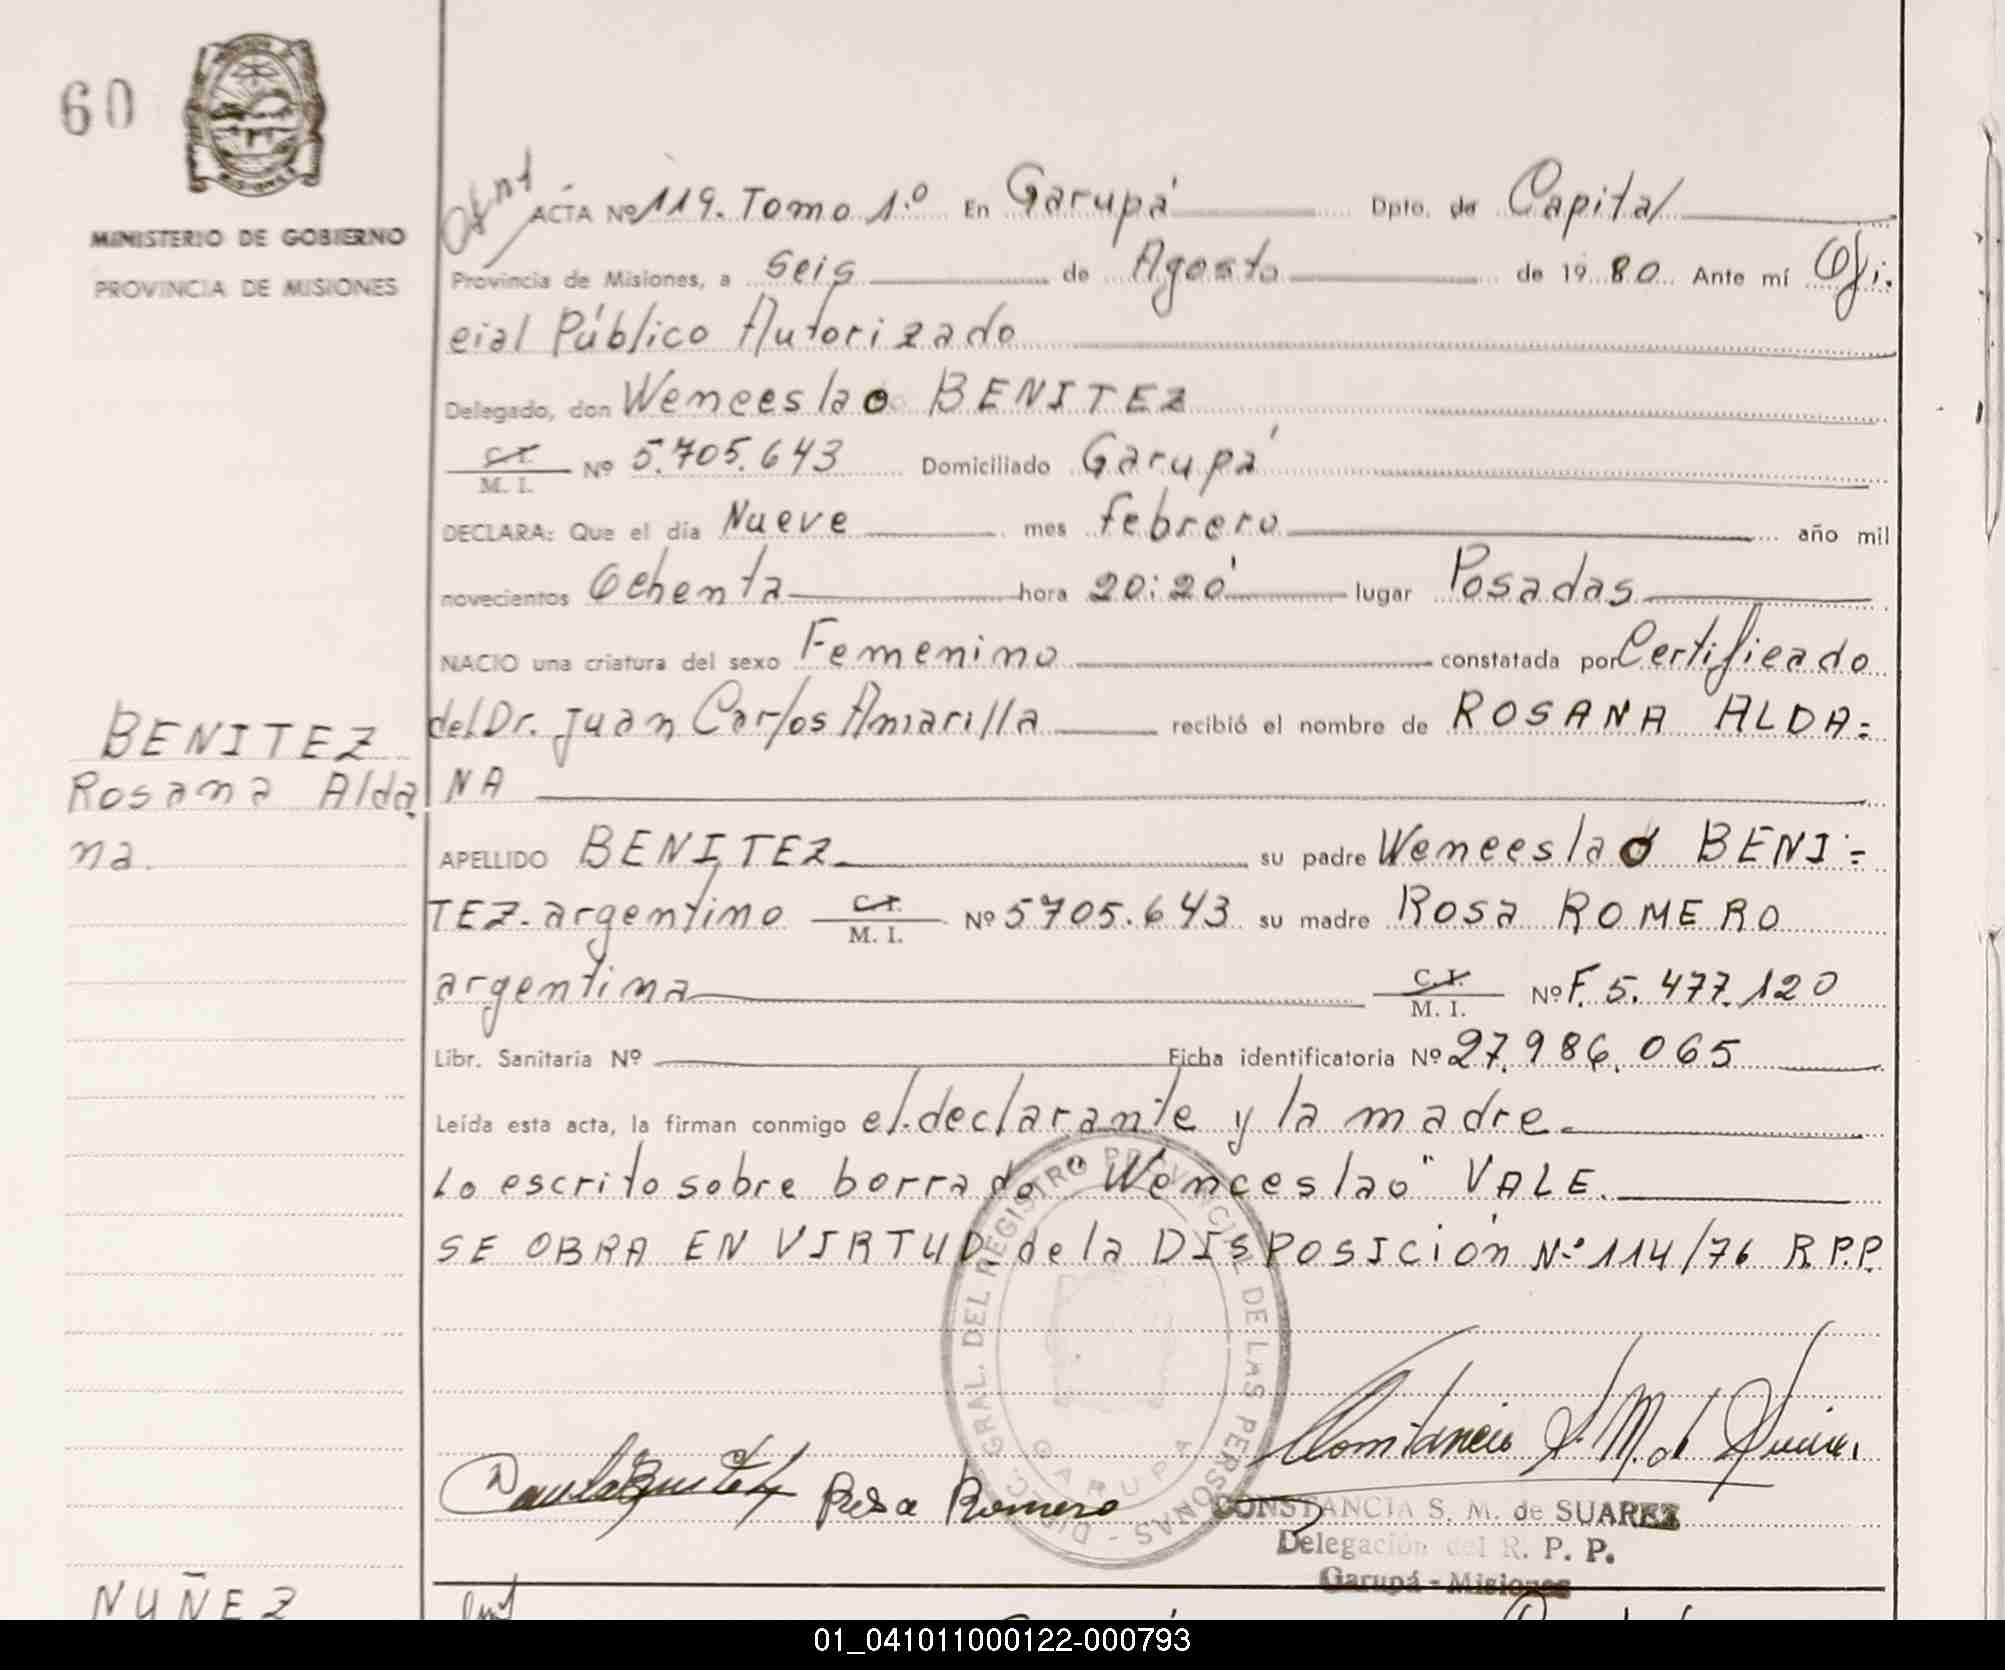 60
MINISTERIO DE GOBIERNO
PROVINCIA DE MISIONES
ACTA Nº 119. Tomo 1.º En Garupá Dpto. de Capital
Provincia de Misiones, a Seis de Agosto de 1980. Ante mí Ofi.
cial Público Autorizado
Delegado, don Wenceslao BENITEZ
C. I.
M. I. Nº 5.705.643 Domiciliado Garupá
DECLARA: Que el día Nueve mes febrero año mil
novecientos Ochenta hora 20:20' lugar Posadas
NACIO una criatura del sexo Femenino constatada por Certificado
del Dr. Juan Carlos Amarilla recibió el nombre de ROSANA ALDA=
NA
BENITEZ
Rosana Alda
na.
APELLIDO BENITEZ su padre Wenceslao BENI=
TEZ. argentino C. I. M. I. Nº 5705.643 su madre Rosa ROMERO
argentina C. I. M. I. Nº F. 5.477.120
Libr. Sanitaria Nº Ficha identificatoria Nº 27.986.065
Leída esta acta, la firman conmigo el declarante y la madre.
Lo escrito sobre borrado "Wenceslao" VALE.
SE OBRA EN VIRTUD de la DISPOSICIÓN Nº 114/76 R.P.P.
DIREC. GRAL. DEL REGISTRO PROVINCIAL DE LAS PERSONAS -
GARUPA
Rosa Romero
CONSTANCIA S. M. de SUAREZ
Delegación del R. P. P.
Garupá - Misiones
NUÑEZ
01_041011000122-000793